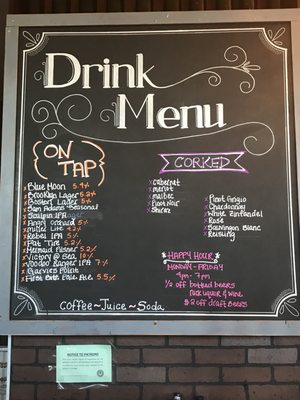 Drink
Menu
ON
TAP
Blue Moon 5.4%
Brooklyn Lager 5.2%
Boston Lager 5%
Sam Adams Seasonal
Sculpin IPA
Angry Orchard 5%
Miller Lite 4.2%
Rebel IPA
Fat Tire 5.2%
Mermaid Pilsner 5.2%
Victory @ Sea 10%
Voodoo Ranger IPA 7%
Garvies Point
5.5%
CORKED
Cabernet
Merlot
Malbec
Pinot Noir
Shiraz
Pinot Grigio
Chardonnay
White Zinfandel
Rose
Sauvingnon Blanc
Reisling
HAPPY HOUR
MONDAY-FRIDAY
4pm-7pm
1/2 off bottled beers
rack liquor & wine
$2 off draft Beers
Coffee~Juice~Soda
NOTICE TO PATRONS